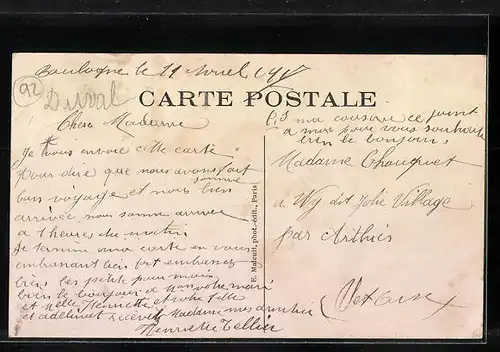 Boulogne le 11 Avril
92
Duval
CARTE POSTALE
Chère Madame
Je vous envoie cette carte
Pour dire que nous avons fait
bon voyage et nous somme bien
arrivée nous somme arriver
a 1 heures du matin
Je termine ma carte en vous
embrassant bien fort embrassez
bien les petite pour moi
bien le bonjour a votre mari
et Melle Henriette et votre fille
et recevez Madame mes
Henriette Tellier
E. Malcuit, phot.-édit., Paris
P.S ma cousine ce joint
a moi pour vous souhaiter
bien le bonjour
Madame Chouquet
a Wy dit Jolie Village
par Arthies
Vet Oise